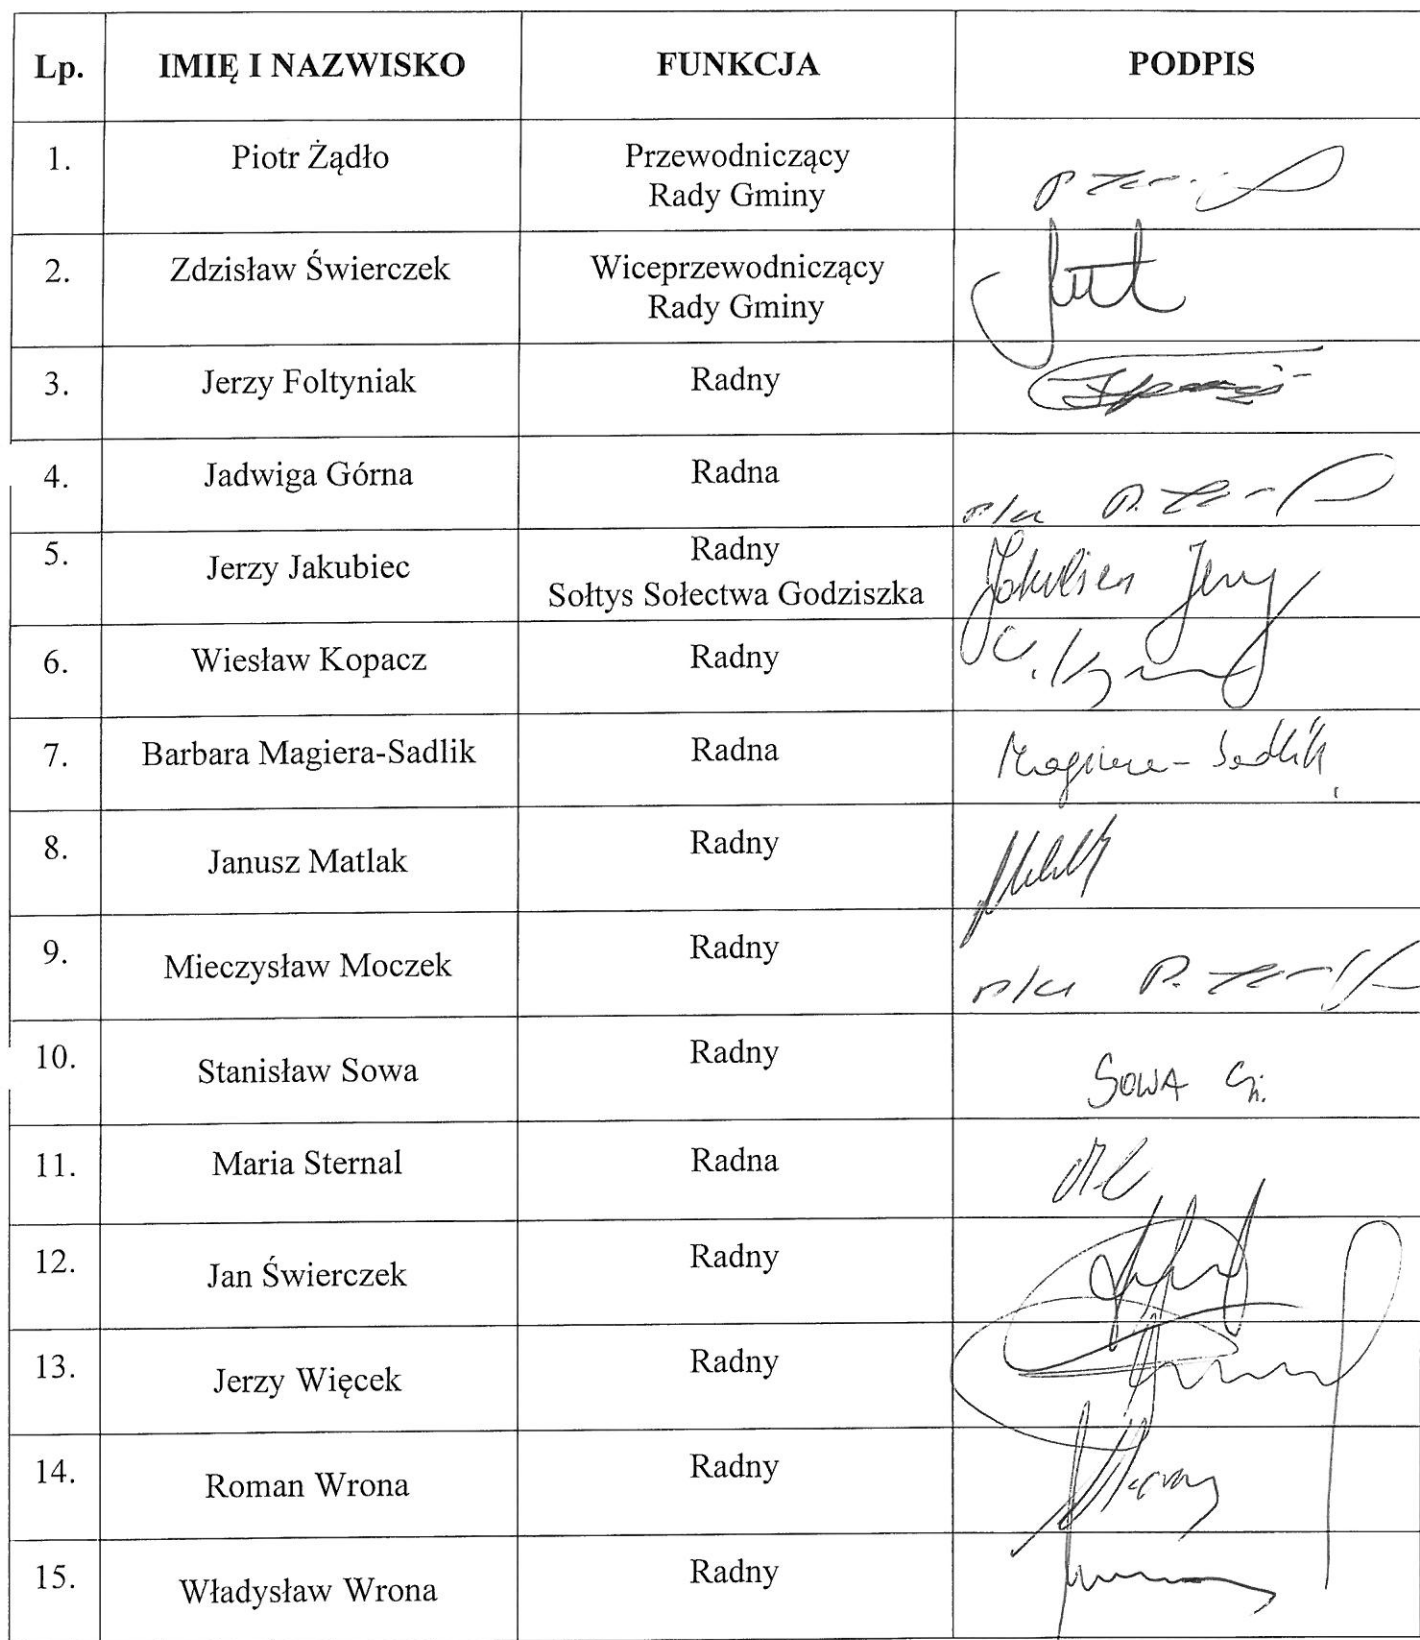 Lp. IMIĘ I NAZWISKO FUNKCJA PODPIS
1. Piotr Żądło Przewodniczący
Rady Gminy
2. Zdzisław Świerczek Wiceprzewodniczący
Rady Gminy
3. Jerzy Foltyniak Radny
4. Jadwiga Górna Radna
5. Jerzy Jakubiec Radny
Sołtys Sołectwa Godziszka
Jakubiec Jerzy
6. Wiesław Kopacz Radny
7. Barbara Magiera-Sadlik Radna Magiera-Sadlik
8. Janusz Matlak Radny
9. Mieczysław Moczek Radny
10. Stanisław Sowa Radny SOWA St.
11. Maria Sternal Radna
12. Jan Świerczek Radny
13. Jerzy Więcek Radny
14. Roman Wrona Radny
15. Władysław Wrona Radny